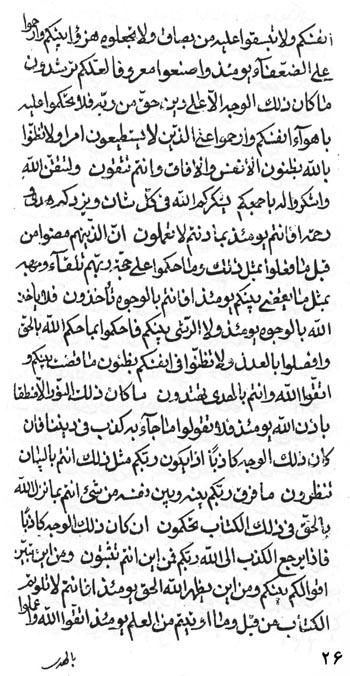 انفسكم ولا تسبقوا عليه من بصاف ولا تجعلوه هزوا بينكم وارحموا
على الضعفآء يومئذ واصنعوا معروفا لعلكم ترشدون
ما كان ذلك الوجه الا على دين حق من ربه فلا تحكموا عليه
باهوآء انفسكم وارحموا على الذين لا يستطيعون امرا ولا تظنوا
بالله بظنون الانفس والافاق وانتم تتقون ولتتقن الله
واشكروا له باجمعكم يذكركم الله في كل شان ويزدكم من
رحمته افانتم يومئذ بما دنتم لا تعملون ان الذينهم مضوا من
قبل ما فعلوا بمثل ذلك وما حكموا على حجة ربهم تلقآء وجهه
بمثل ما يقضي بينكم يومئذ افانتم بالوجوه تأخذون فلا يأخذ
الله بالوجوه يومئذ ولا الربى بينكم فاحكموا بما حكم الله بالحق
وافصلوا بالعدل ولا تظلموا في انفسكم بظنون ما قضت بينكم و
اتقوا الله وانتم بالهدى تهتدون ما كان ذلك النور الا منطقا
باذن الله يومئذ فلا تقولوا ما جآء به كذب في ديننا فان
كان ذلك الوجه كاذبا ايكون ربكم مثل ذلك انتم بالبيان
تنظرون ما فرق ربكم بينه وبين دينه من شئ انتم بما نزل الله
بالحق في ذلك الكتاب تحكمون ان كان ذلك الوجه كاذبا
فاذا يرجع الكذب الى الله ربكم فمن اين انتم تثبتون ومن اين يتميز
اقوالكم بينكم ومن اين يظهر الله الحق يومئذ افانتم لا تلوتم
الكتاب من قبل وما اوتيتم من العلم يومئذ اتقوا الله وعملوا
بالهدى
٢٦